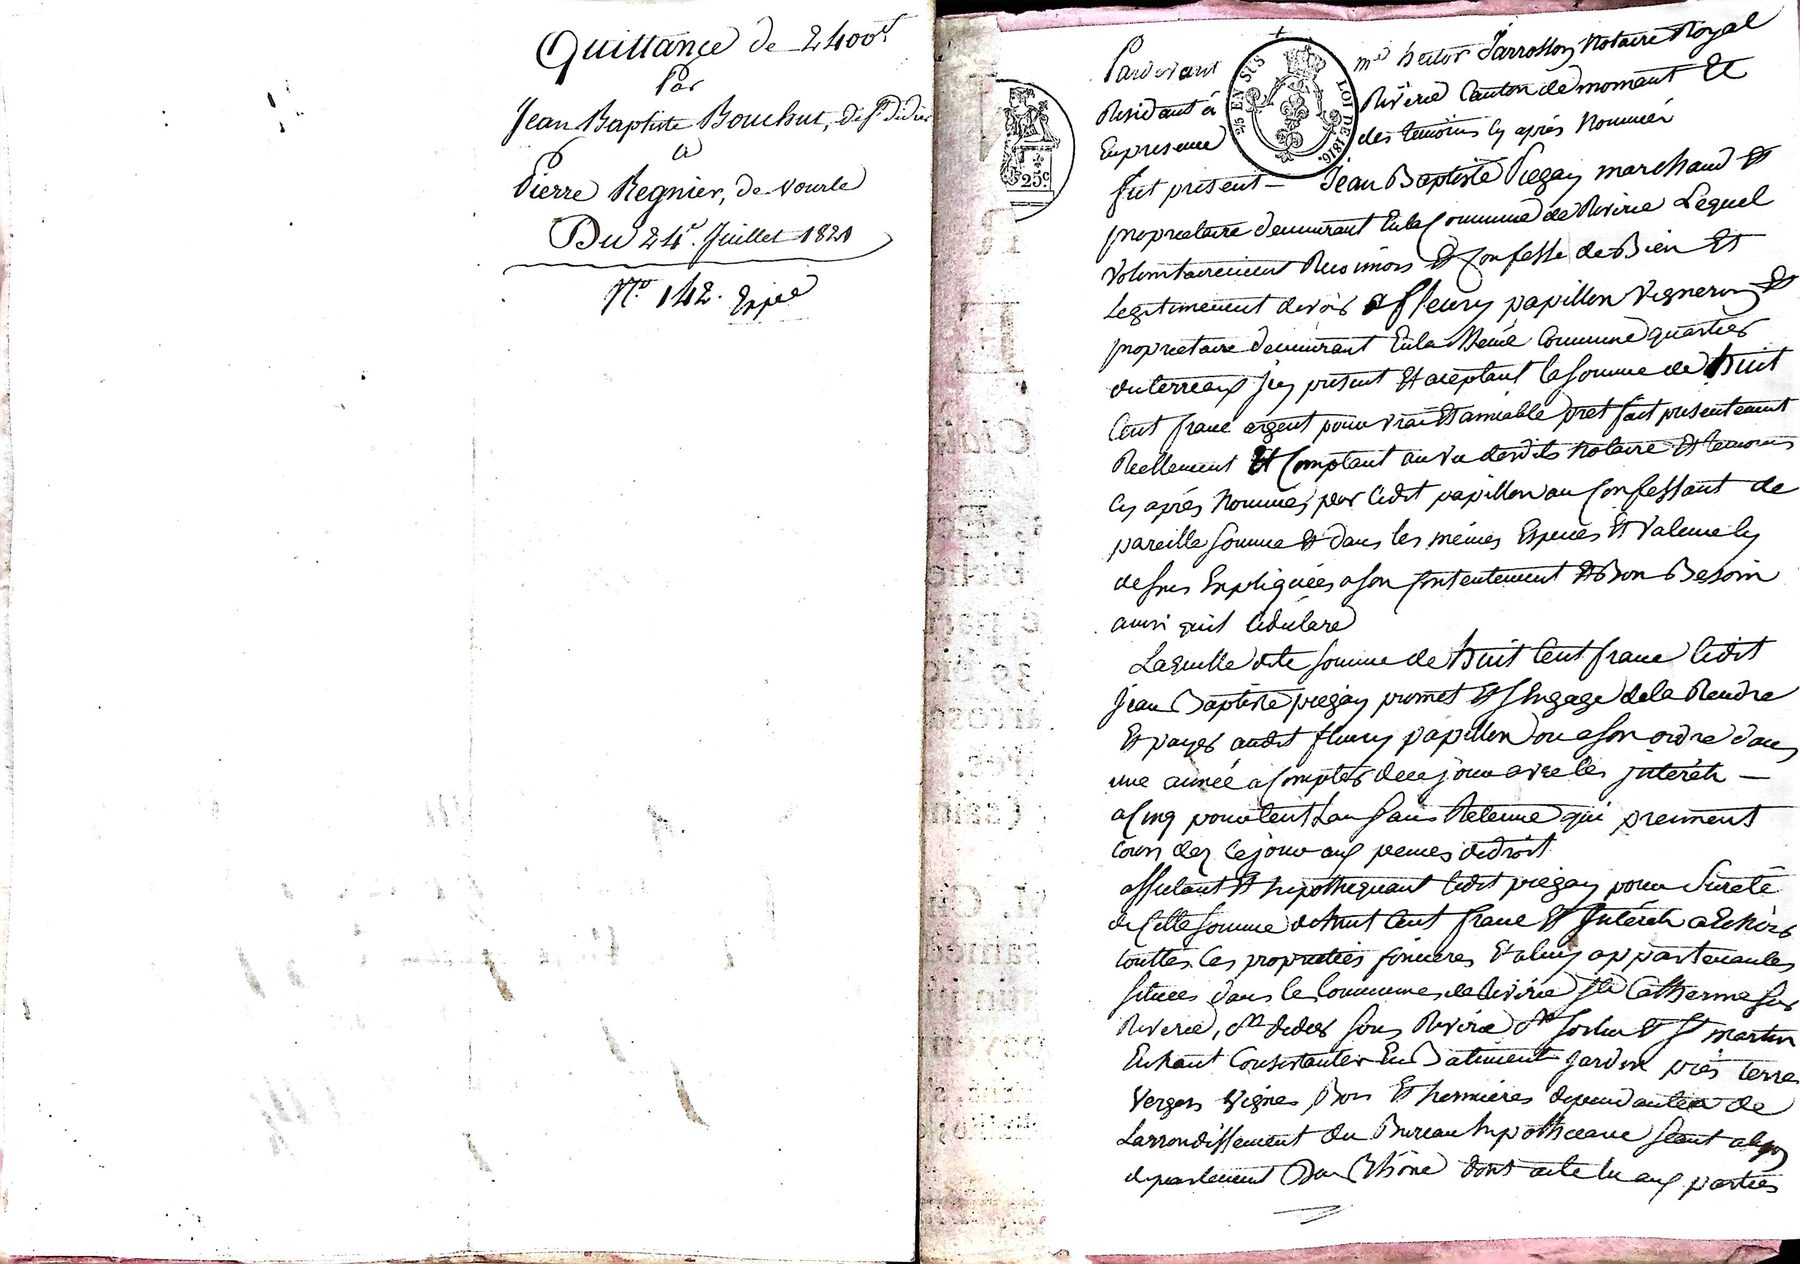 Quittance de 2400f.
Par
Jean Baptiste Bouchut, de St. Didier
à
Pierre Regnier, de vourle
Du 24. Juillet 1821
N.o 142. Expée
25c
2/5 EN SUS
LOI DE 1816.
Pardevant me hector Jarrosson Notaire Royal
Residant à Riverie Canton de mornant Et
En presence des temoins cy après Nommés
fut present - Jean Baptiste Piegay marchand Et
proprietaire demeurant En la Commune de Riverie Lequel
volontairement Et Confesse de Bien Et
Legitimement devoir a fleury papillon vigneron Et
proprietaire demeurant En la Même Commune quartier
du terreaux Jcy present Et aceptant la somme de huit
Cent franc argent pour vrai Et amiable pret fait presentement
Reellement Et Comptant au vu desdits Notaire Et temoins
Cy après Nommés par ledit papillon au Confessant de
pareille somme Et dans les mêmes Especes Et valeur cy
desus Expliquées a son Contentement Et Bon Besoin
ainsi quil ledéclare
Laquelle dite somme de huit Cent franc ledit
Jean Baptiste piegay promet Et s'Engage de la Rendre
Et payer audit fleury papillon ou a son ordre dans
une année a Compter de ce jour avec les jnterêts -
a Cinq pour Cent Lan sans Retenue qui prennent
Cours dez ce jour aux peines de droit
affectant Et hipothequant ledit piegay pour Sureté
de Cette somme de huit Cent franc Et jnterêts a Echoir
touttes les proprietés foncieres Et a luy appartenantes
situées dans les Communes de Riverie Ste Catherine sur
Riverie, St didier sous Riverie St sorlin Et St martin
En haut Consistantes En Batiment jardin près terres
Vergers Vignes Bois Et hermières dependantes de
Larrondissement du Bureau hypothecaire seant a Lyon
departement Du Rhône dont acte lu aux parties